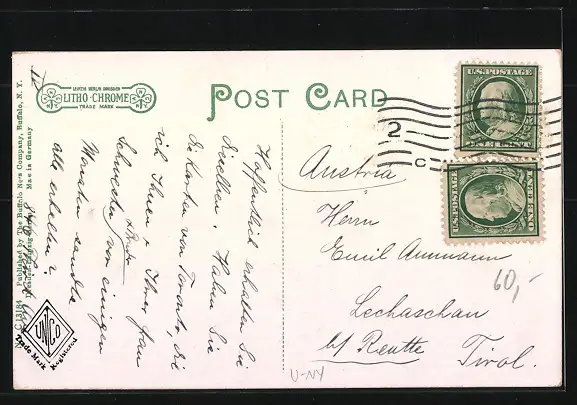 LEIPZIG BERLIN DRESDEN
LITHO-CHROME
TRADE MARK
POST CARD
U.S. POSTAGE
ONE CENT
U.S. POSTAGE
ONE CENT
2
C
Austria
Herrn
Emil Ammann
Lechaschau
b/ Reutte
Tirol.
60,-
U-NY
Hoffentlich erhalten Sie
dieselben. Haben Sie
die Karten von Toronto, die
ich Ihnen & Ihrer Frau
Schwester von einigen
Monaten sandte
alle erhalten?
No. C 13184 Published by The Buffalo News Company, Buffalo, N. Y.
Dresden-Leipzig-Berlin Made in Germany
UNICO
Trade Mark
Registered